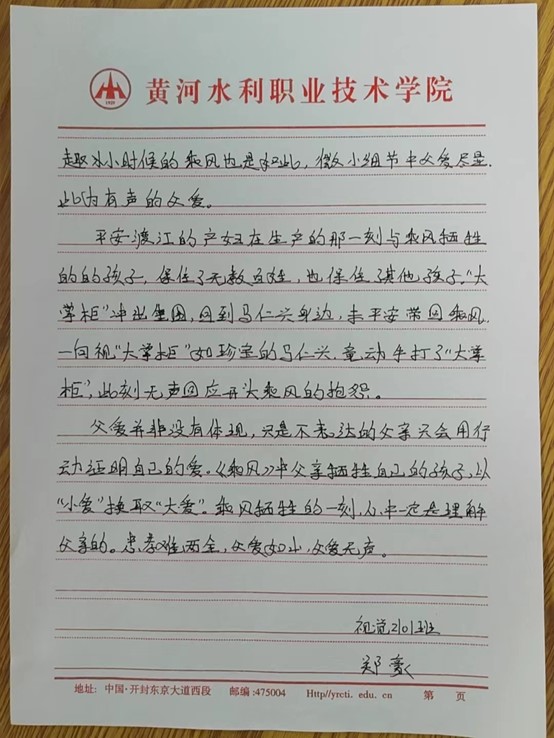 黄河水利职业技术学院
趣小时候的乘风也是如此，微小细节中父爱尽显.
此为有声的父爱。
平安渡江的产妇在生产的那一刻与乘风牺牲
的的孩子，保住了无数百姓，也保住了其他孩子。“大
掌柜”冲出重围，回到马仁兴身边，未平安带回乘风.
一向视“大掌柜”如珍宝的马仁兴.竟动手打了“大掌
柜”，此刻无声回应开头乘风的抱怨。
父爱并非没有体现，只是不表达的父亲只会用行
动证明自己的爱。《乘风》中父亲牺牲自己的孩子，以
“小爱”换取“大爱”。乘风牺牲的一刻，心中一定是理解
父亲的。忠孝难两全，父爱如山，父爱无声。
视觉2101班
郑
地址: 中国·开封东京大道西段 邮编:475004 Http//yrcti. edu. cn 第 页